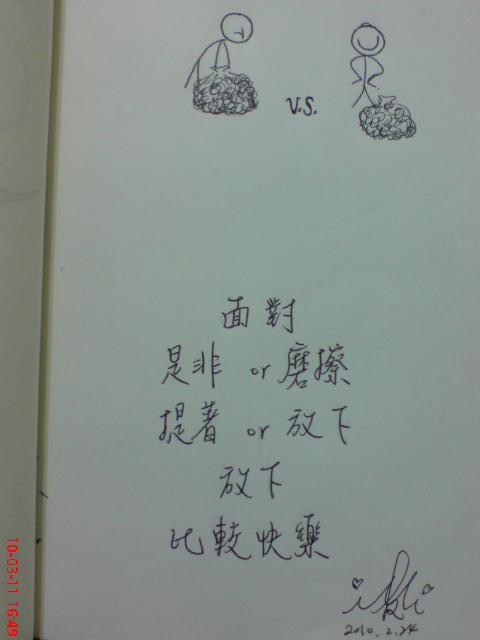 V.S.
面對
是非 or 磨擦
提著 or 放下
放下
比較快樂
2010.2.24
10-03-11 16:49